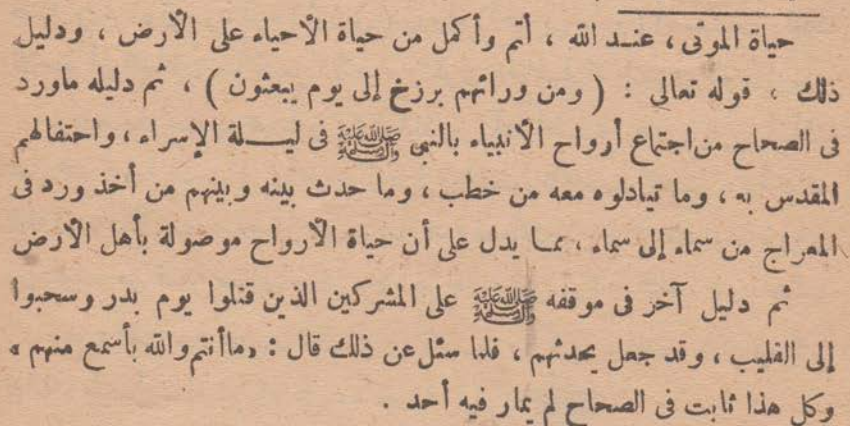 حياة الموتى ، عند الله ، أتم وأكمل من حياة الأحياء على الأرض ، ودليل
ذلك ، قوله تعالى : ( ومن ورائهم برزخ إلى يوم يبعثون ) ، ثم دليله ماورد
فى الصحاح من اجتماع أرواح الأنبياء بالنبى ﷺ فى ليـــلة الإسراء ، واحتفالهم
المقدس به ، وما تبادلوه معه من خطب ، وما حدث بينه وبينهم من أخذ ورد فى
المعراج من سماء إلى سماء ، مما يدل على أن حياة الأرواح موصولة بأهل الأرض
ثم دليل آخر فى موقفه ﷺ على المشركين الذين قتلوا يوم بدر وسحبوا
إلى القليب ، وقد جعل يحدثهم ، فلما سئل عن ذلك قال : «ماأنتم والله بأسمع منهم »
وكل هذا ثابت فى الصحاح لم يمار فيه أحد .